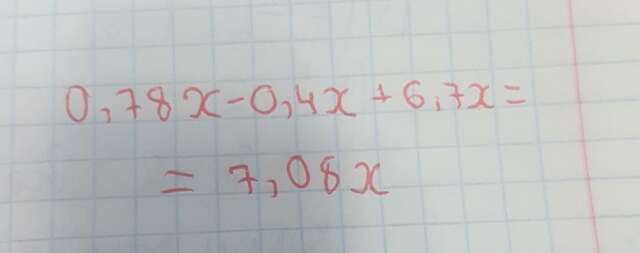 0,78x-0,4x+6,7x=
= 7,08x